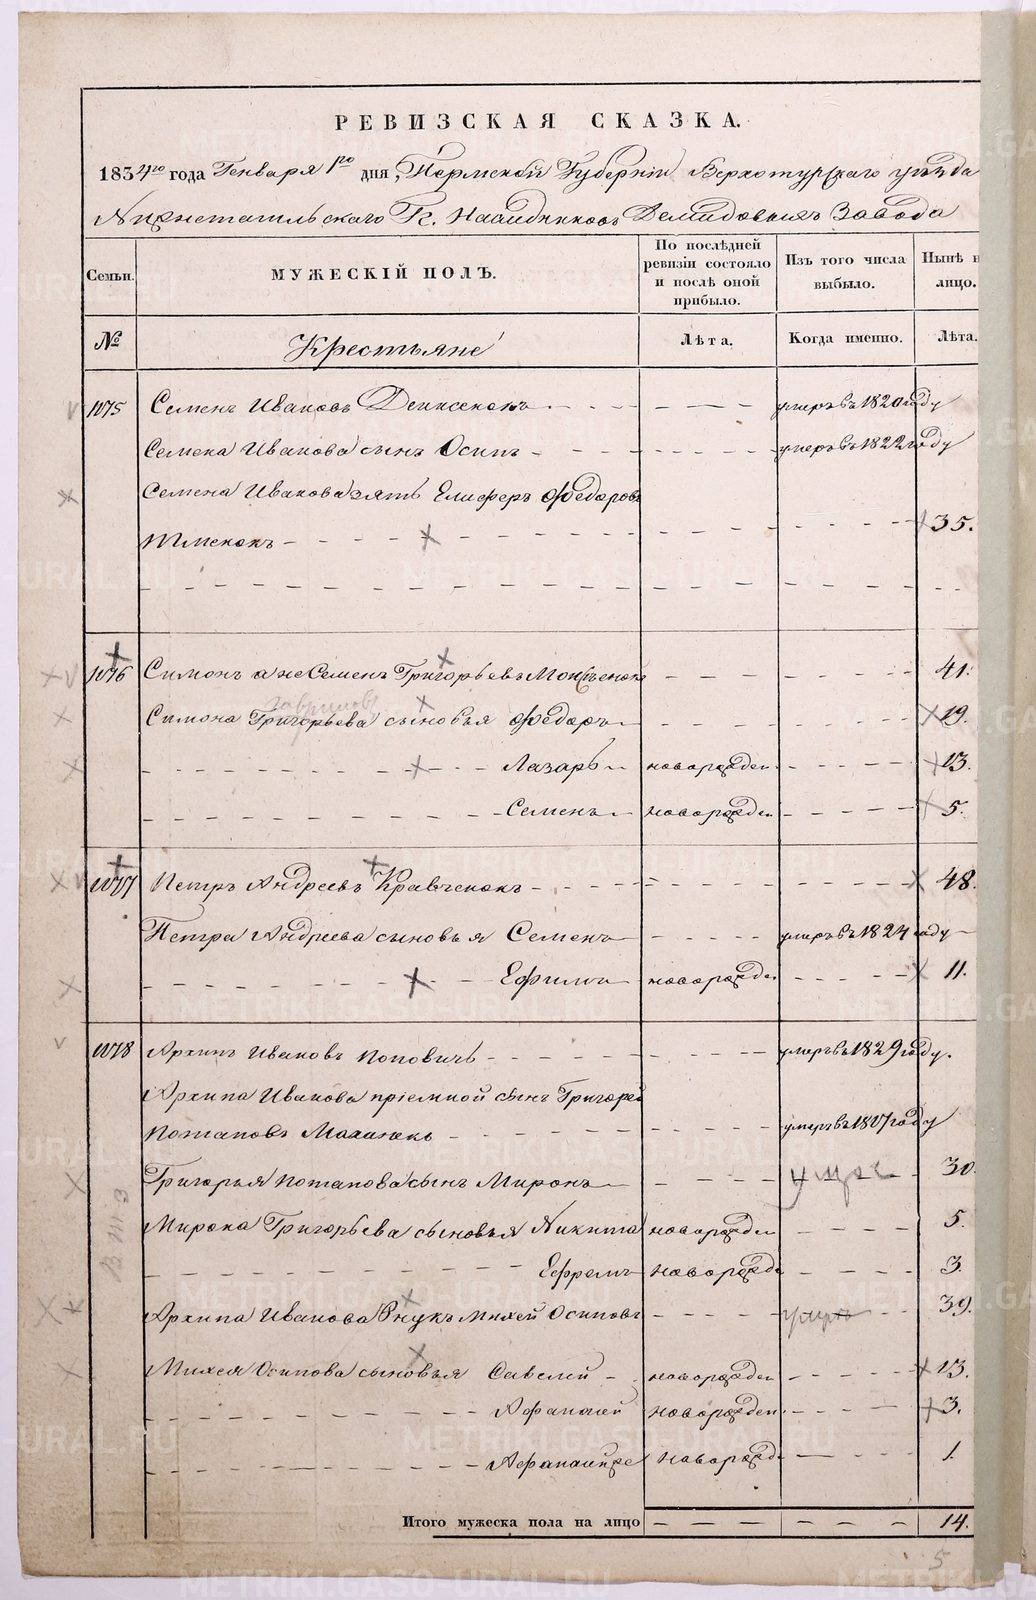 РЕВИЗСКАЯ СКАЗКА.
1834го года Генваря 1го дня, Пермской Губернiи Верхотурскаго уѣзда
Нижнетагильскаго Гг. Наслѣдниковъ Демидовыхъ Завода
Семьи. МУЖЕСКIЙ ПОЛЪ. По послѣдней ревизiи состояло и послѣ оной прибыло. Изъ того числа выбыло. Нынѣ н лицо.
№ Крестьяне Лѣта. Когда именно. Лѣта.
1075 Семенъ Ивановъ умеръ въ 1820 году
Семена Иванова сынъ Осипъ умеръ въ 1822 году
Семена Иванова зять Елиферъ Федоровъ
35.
1076 Симонъ а не Семенъ Григорьевъ 41.
Гавриловъ
Симона Григорьева сыновья Федоръ 19.
Лазарь новорожден 13.
Семенъ новорожден 5.
1077 Петръ Андреевъ Кравченокъ 48.
Петра Андреева сыновья Семенъ умеръ въ 1824 году
Ефимъ новорожден 11.
1078 Архипъ Ивановъ Поповичь умеръ въ 1829 году.
Архипа Иванова прiемной сынъ Григорей
Потаповъ умеръ въ 1817 году
Григорья Потапова сынъ Миронъ умре 30.
Мирона Григорьева сыновья Никита новорожден 5.
Ефремъ новорожде 3.
Архипа Иванова внукъ Михей Осиповъ умре 39.
Михея Осипова сыновья Савелей новорожден 13.
Афанасей новорожден 3.
новорожд 1.
Итого мужеска пола на лицо 14.
5
METRIKI.GASO-URAL.RU